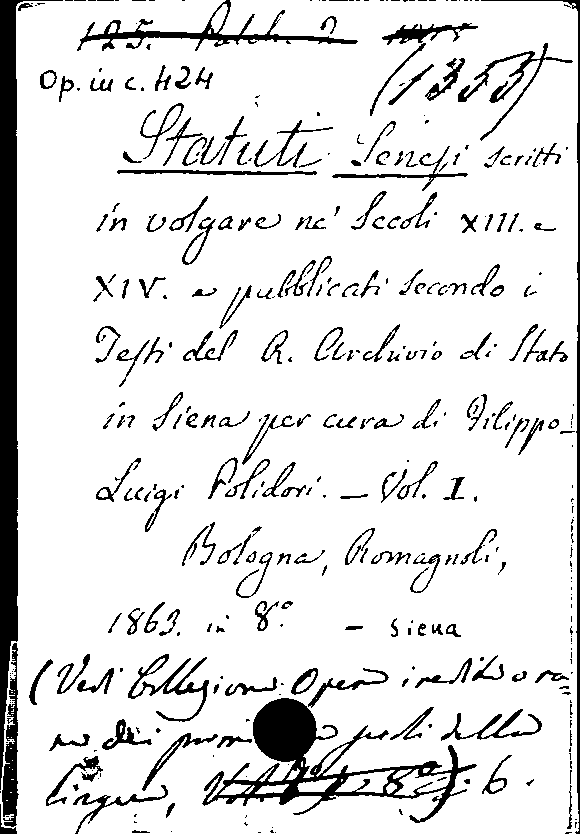 125. Palch. 2
Op. in c. 424
(1353)
Statuti Senesi scritti
in volgare ne' Secoli XIII. e
XIV. e pubblicati secondo i
Testi del R. Archivio di Stato
in Siena per cura di Filippo-
Luigi Polidori. — Vol. I.
Bologna, Romagnoli,
1863. in 8º. — Siena
(Vedi Collezione Opere inedite o ra=
re dei primi secoli della
lingua, Vol. 8º). 6.